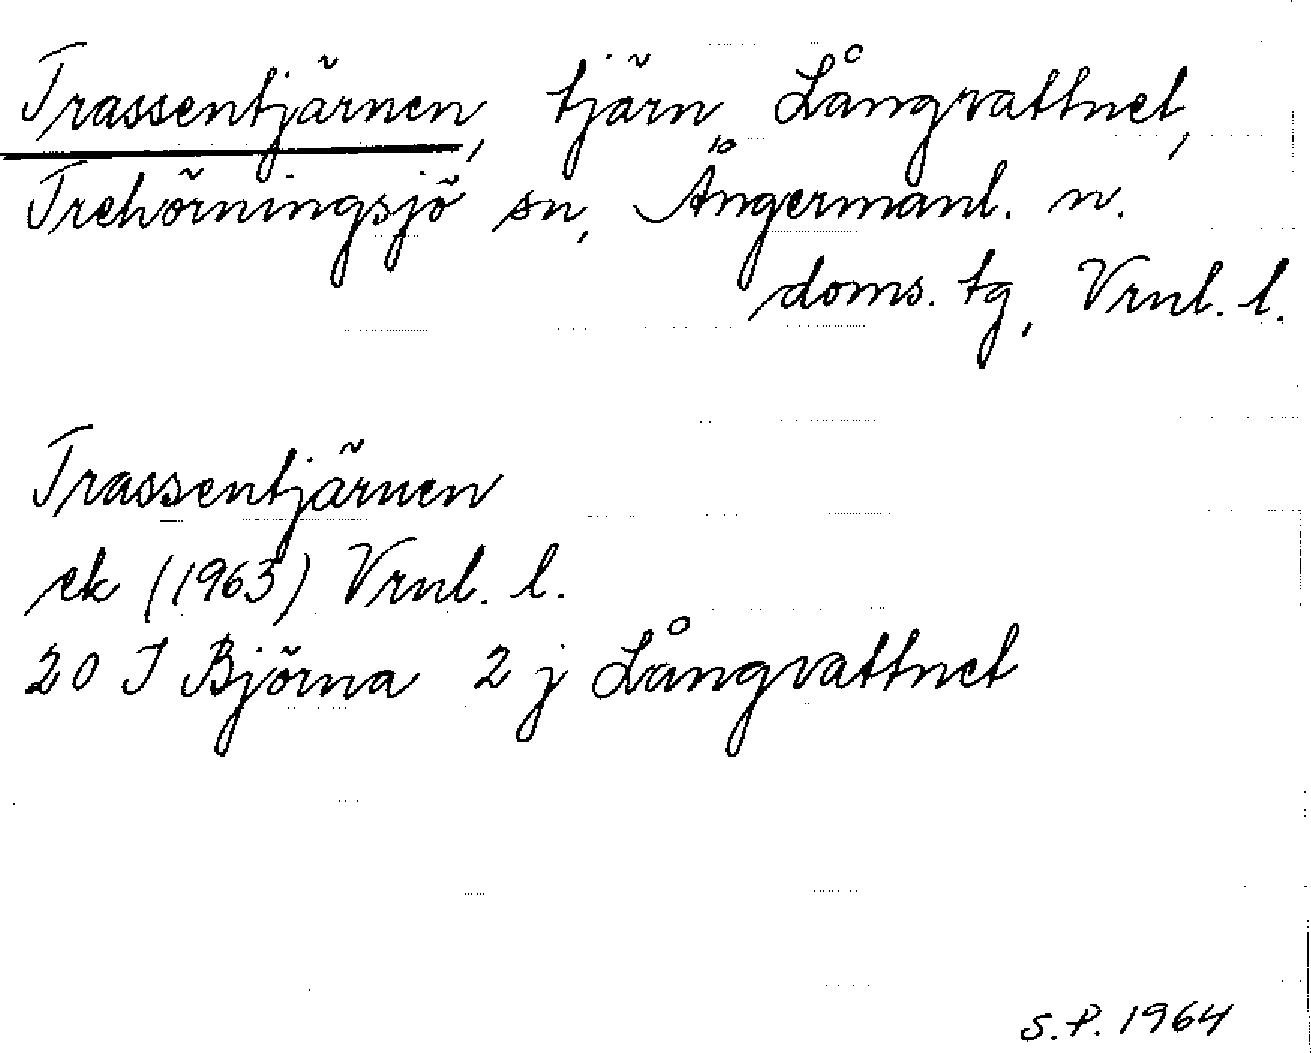 Trassentjärnen, tjärn, Långvattnet,
Trehörningsjö sn, Ångermanl. n.
doms. tg, Vrnl. l.
Trassentjärnen
ek (1963) Vrnl. l.
20 I Björna 2 j Långvattnet
S.P. 1964